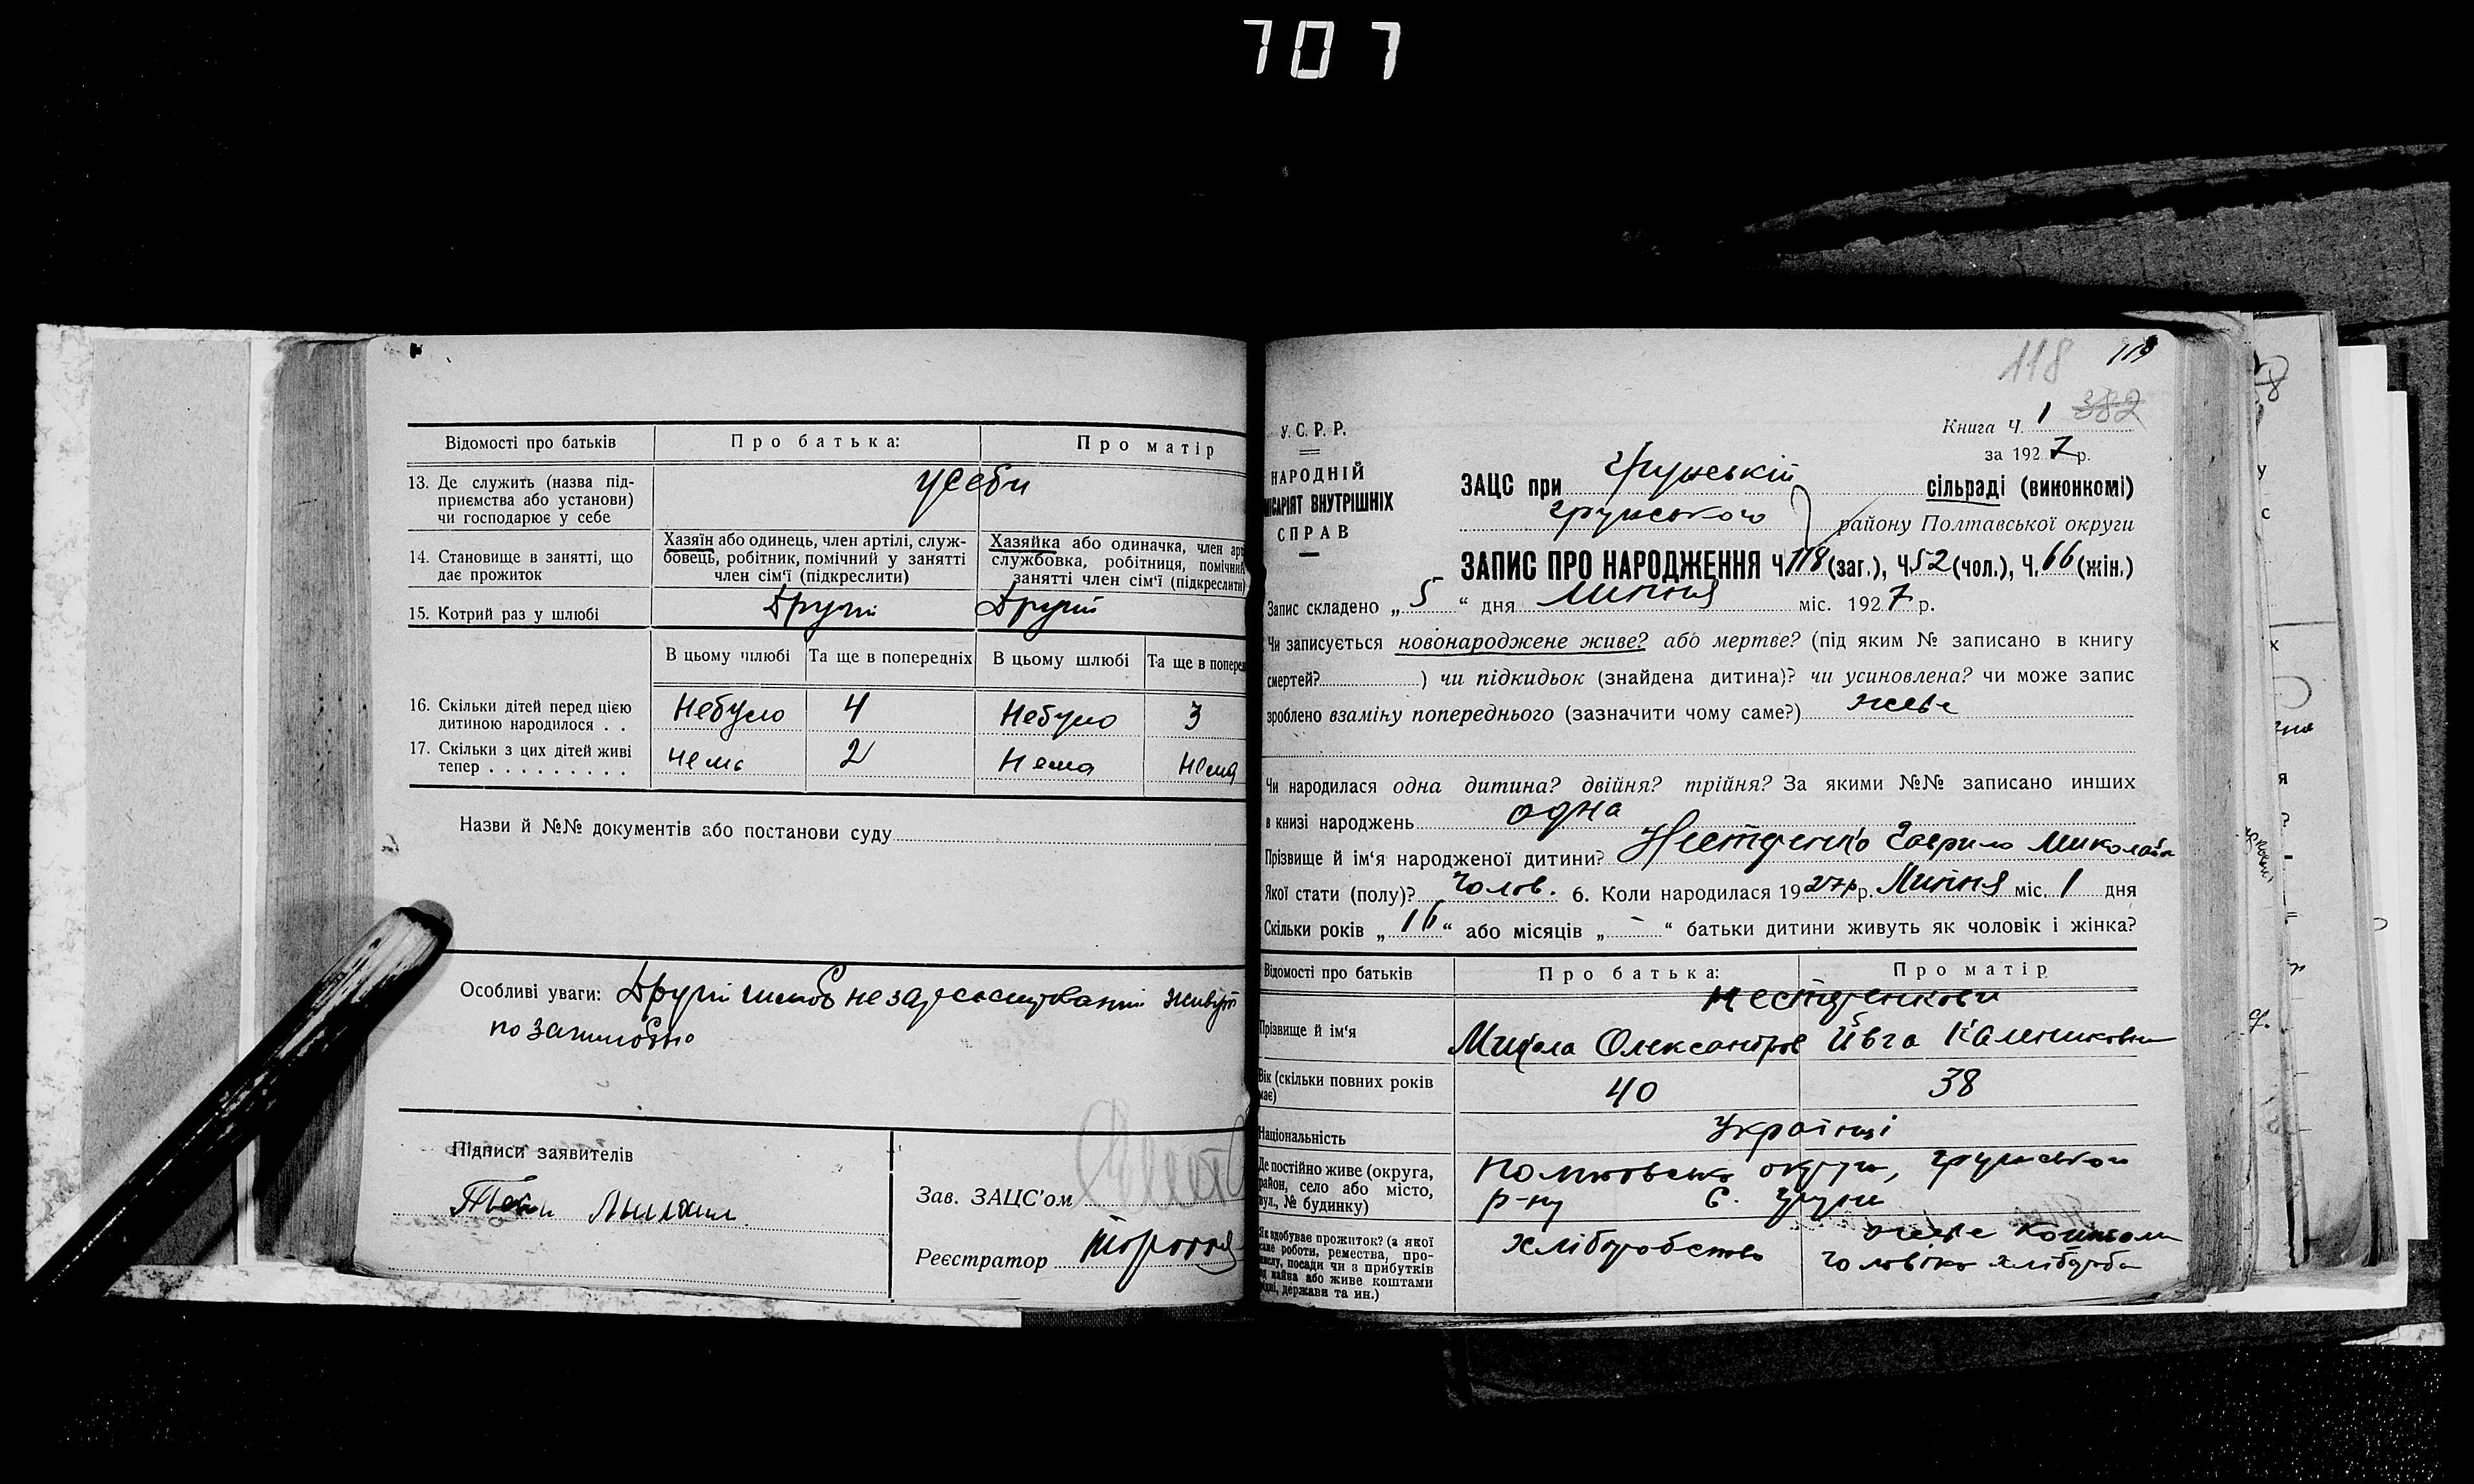 707
Відомості про батьків
Про батька:
Про матір
13. Де служить (назва під-
приємства або установи)
чи господарює у себе
усеби
14. Становище в занятті, що
дає прожиток
Хазяїн або одинець, член артілі, служ-
бовець, робітник, помічний у занятті
член сім'ї (підкреслити)
Хазяйка або одиначка, член арт
службовка, робітниця, помічни
занятті член сім'ї (підкреслити)
15. Котрий раз у шлюбі
Другий Другий
В цьому шлюбі Та ще в попередніх В цьому шлюбі Та ще в поперед
16. Скільки дітей перед цією
дитиною народилося . .
Небуло 4 Небуло 3
17. Скільки з цих дітей живі
тепер . . . . . . . . .
нема 2 Нема Нема
Назви й №№ документів або постанови суду
Особливі уваги: Другий шлюб
живуть
по зашлюбно
Підписи заявителів
Зав. ЗАЦС'ом
Реєстратор
118 119
382
У. С. Р. Р.
НАРОДНІЙ
ІСАРІЯТ ВНУТРІШНІХ
СПРАВ
Книга Ч. 1
за 1927 р.
ЗАЦС при Грунській сільраді (виконкомі)
Грунського району Полтавської округи
ЗАПИС ПРО НАРОДЖЕННЯ Ч. 118 (заг.), Ч. 52 (чол.), Ч. 66 (жін.)
Запис складено „ 5 “ дня Липня міс. 1927 р.
Чи записується новонароджене живе? або мертве? (під яким № записано в книгу
смертей? ) чи підкидьок (знайдена дитина)? чи усиновлена? чи може запис
зроблено взаміну попереднього (зазначити чому саме?) живе
Чи народилася одна дитина? двійня? трійня? За якими №№ записано инших
в книзі народжень одна
Прізвище й ім'я народженої дитини? Гаврило Микола
Якої стати (полу)? Чолов. 6. Коли народилася 1927р р. Липня міс. 1 дня
Скільки років „ 16 “ або місяців „ - “ батьки дитини живуть як чоловік і жінка?
Відомості про батьків
Про батька:
Про матір
Прізвище й ім'я
Микола Олександров Ївга Калениковна
Вік (скільки повних років
має)
40 38
Національність
Українці
Де постійно живе (округа,
район, село або місто,
вул., № будинку)
Полтавська округи, Грунського
р-ну С. Груни
Як здобуває прожиток? (з якої
саме роботи, ремества, про-
мислу, посади чи з прибутків
від майна або живе коштами
рідні, держави та ин.)
хліборобство
живе коштом
чоловіка хлібороба